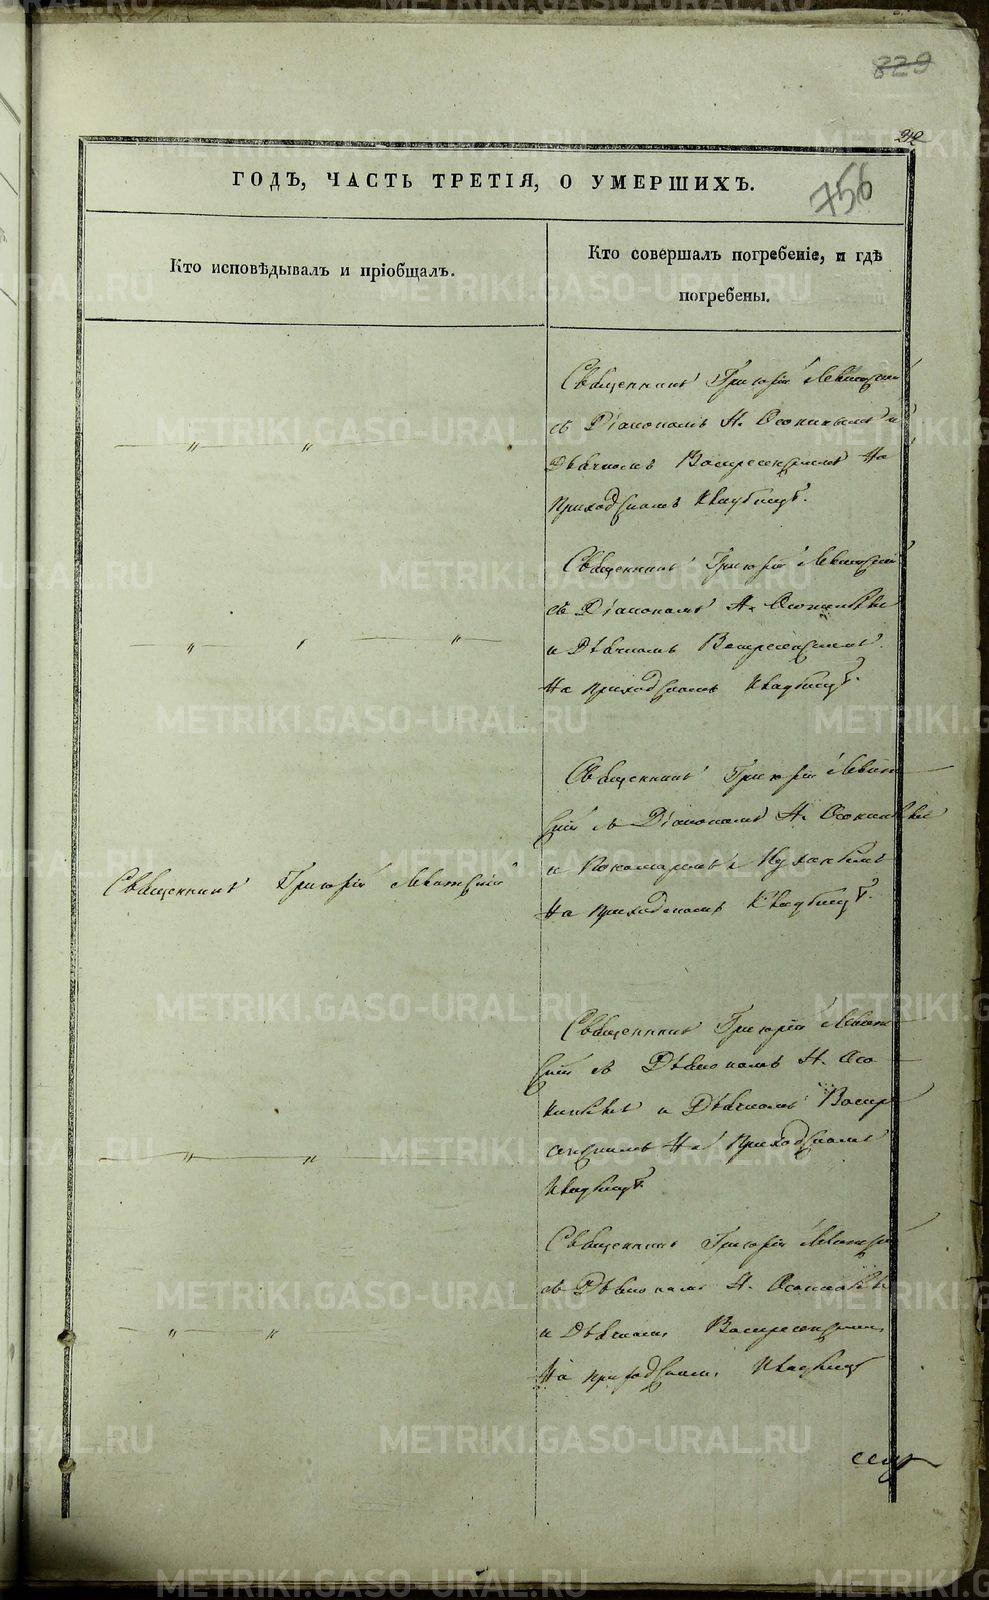 829
242
756
ГОДЪ, ЧАСТЬ ТРЕТІЯ, О УМЕРШИХЪ.
Кто исповѣдывалъ и пріобщалъ.
Кто совершалъ погребеніе, и гдѣ
погребены.
Священникъ Григорій
съ Діакономъ Н. Осокинымъ и
Дьячкомъ Воскресенскимъ На
приходскомъ кладбищѣ.
Священникъ Григорій
съ Діакономъ Н. Осокинымъ
и Дьячкомъ Воскресенскимъ
На приходскомъ кладбищѣ.
Священникъ Григорій
съ Діакономъ Н. Осокинымъ
и Пономаремъ
На приходскомъ кладбищѣ.
Священникъ Григорій
Священникъ Григорій
съ Діакономъ Н. Осо
кинымъ и Дьячкомъ Воскре
сенскимъ На Приходскомъ
кладбищѣ
Священникъ Григорій
съ Діакономъ Н. Осокинымъ
и Дьячкомъ Воскресенскимъ
На приходскомъ кладбищѣ
METRIKI.GASO-URAL.RU